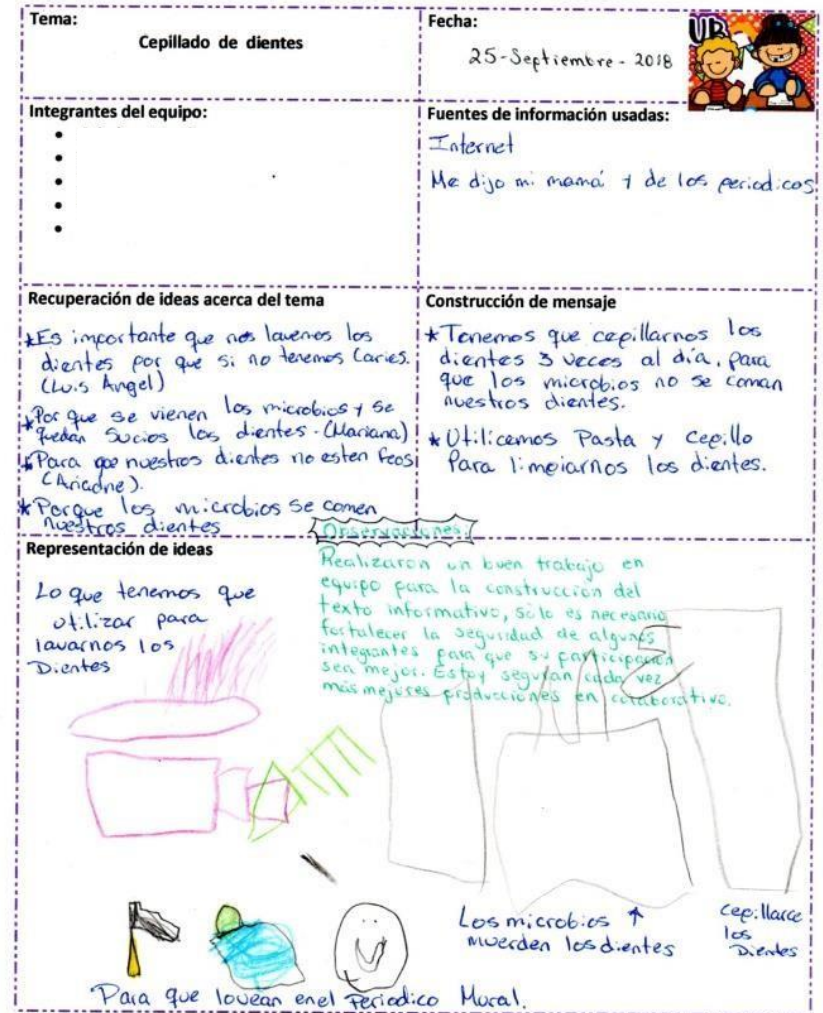 Tema:
Cepillado de dientes
Fecha:
25-Septiembre-2018
UB
Integrantes del equipo:
Fuentes de información usadas:
Internet
Me dijo mi mamá y de los periodicos
Recuperación de ideas acerca del tema
*Es importante que nos lavemos los
dientes por que si no tenemos Caries.
(Luis Angel)
*Por que se vienen los microbios y se
quedan Sucios los dientes.(Mariana)
*Para que nuestros dientes no esten feos
(Ariadne).
*Porque los microbios se comen
nuestros dientes
Construcción de mensaje
*Tenemos que cepillarnos los
dientes 3 veces al día, para
que los microbios no se coman
nuestros dientes.
*Utilicemos Pasta y Cepillo
Para limpiarnos los dientes.
Representación de ideas
Lo que tenemos que
utilizar para
lavarnos los
Dientes
Observaciones:
Realizaron un buen trabajo en
equipo para la construcción del
texto informativo, sólo es necesario
fortalecer la seguridad de algunos
integrantes para que su participación
sea mejor. Estoy seguran cada vez
más mejores producciones en colaborativo.
Los microbios ↑
muerden los dientes
Cepillarce
los
Dientes
Para que lovean enel Periodico Mural.